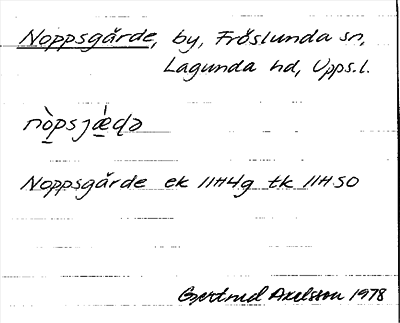 Noppsgärde, by, Fröslunda sn,
Lagunda hd, Upps.l.
nò̱psjǽ̱ɖə
Noppsgärde ek 11H4g tk 11H SO
Gertrud Axelsson 1978